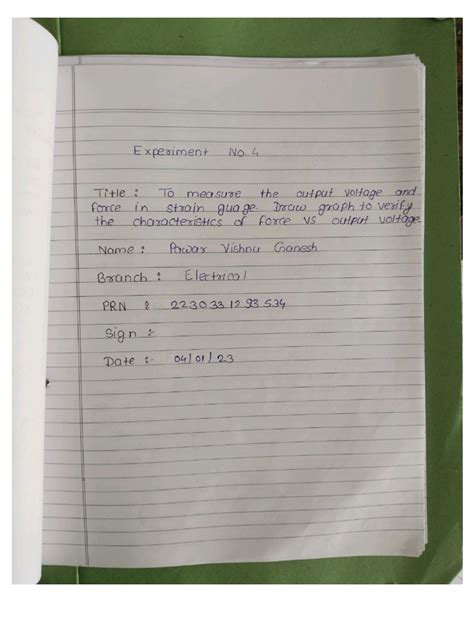 Experiment No 4
Title : To measure the output voltage and
force in strain guage Draw graph to verify
the characteristics of force vs output voltage
Name : Pawar Vishnu Ganesh
Branch : Electrical
PRN : 2230331293534
Sign :-
Date :- 04/01/23